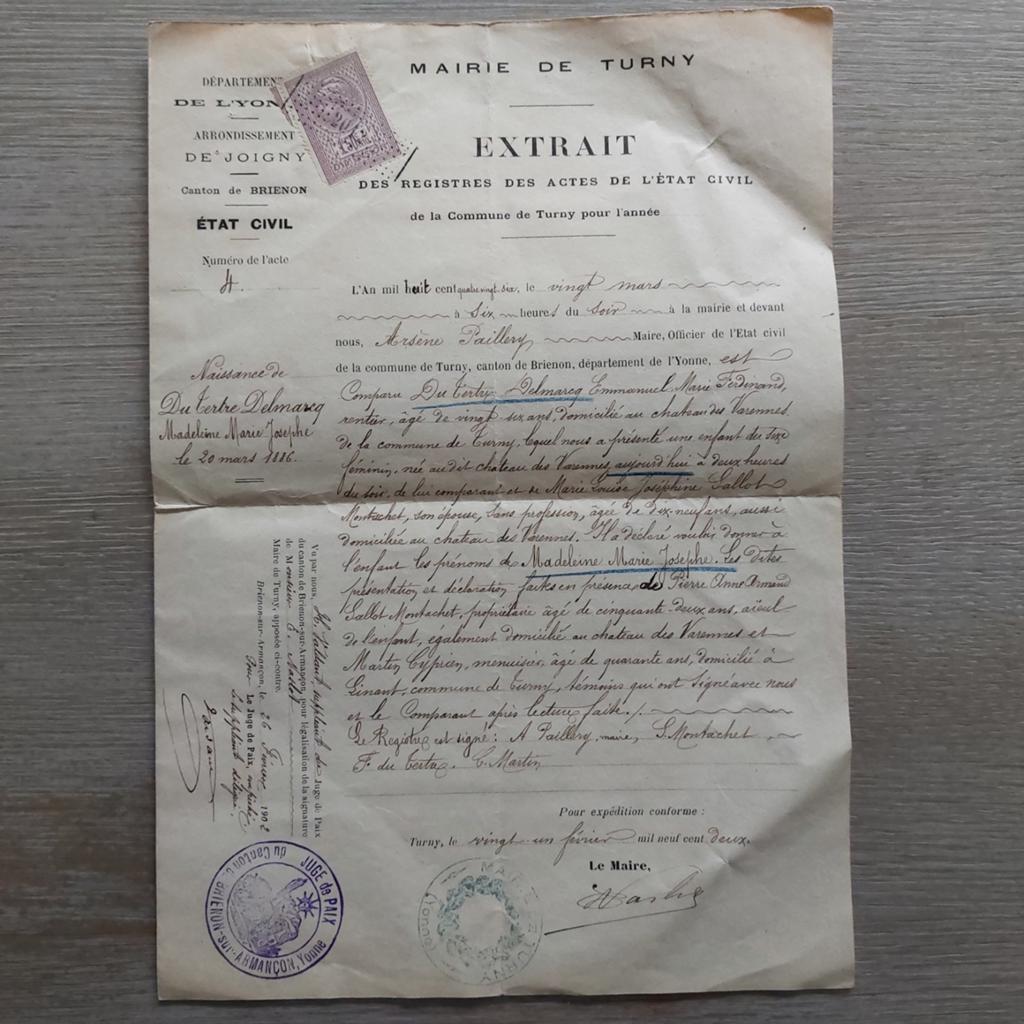 DÉPARTEMENT
DE L'YONNE
ARRONDISSEMENT
DE JOIGNY
Canton de BRIENON
ÉTAT CIVIL
Numéro de l'acte
4.
Naissance de
Du Tertre Delmarcq
Madeleine Marie Josephe
le 20 mars 1886.
MAIRIE DE TURNY
EXTRAIT
DES REGISTRES DES ACTES DE L'ÉTAT CIVIL
de la Commune de Turny pour l'année
L'An mil huit cent quatre vingt six, le vingt mars
à six heures du soir à la mairie et devant
nous, Arsène Paillery Maire, Officier de l'Etat civil
de la commune de Turny, canton de Brienon, département de l'Yonne, est
Comparu Du Tertre Delmarcq Emmanuel Marie Ferdinand,
rentier, âgé de vingt six ans, domicilié au chateau des Varennes
de la commune de Turny, lequel nous a présenté une enfant du sexe
féminin, née au dit château des Varennes, aujourd'hui à deux heures
du soir, de lui comparant et de Marie Louise Joséphine Sallot
Montachet, son épouse, sans profession, âgée de dix-neuf ans, aussi
domiciliée au chateau des Varennes. Il a déclaré vouloir donner à
l'enfant les prénoms de Madeleine Marie Josephe. Les dites
présentation et déclaration faites en présence de Pierre Anne Armand
Sallot Montachet, propriétaire âgé de cinquante-deux ans, aïeul
de l'enfant, également domicilié au château des Varennes et
Martin Cyprien, menuisier, âgé de quarante ans, domicilié à
Linant, commune de Turny, témoins qui ont signé avec nous
et le Comparant après lecture faite./.
Le Registre est signé: A Paillery, maire, S. Montachet,
F. du Tertre. C. Martin
Pour expédition conforme :
Turny, le vingt un février mil neuf cent deux.
Le Maire,
Vu par nous, suppléant du Juge de Paix
du canton de Brienon-sur-Armançon, pour légalisation de la signature
de Monsieur
Maire de Turny, apposée ci-contre.
Brienon-sur-Armançon, le 26 Février 1902
Pour Le Juge de Paix, empêché
Le suppléant délégué,
JUGE de PAIX
du Canton de BRIENON-sur-ARMANÇON, Yonne
MAIRIE DE TURNY
(Yonne)